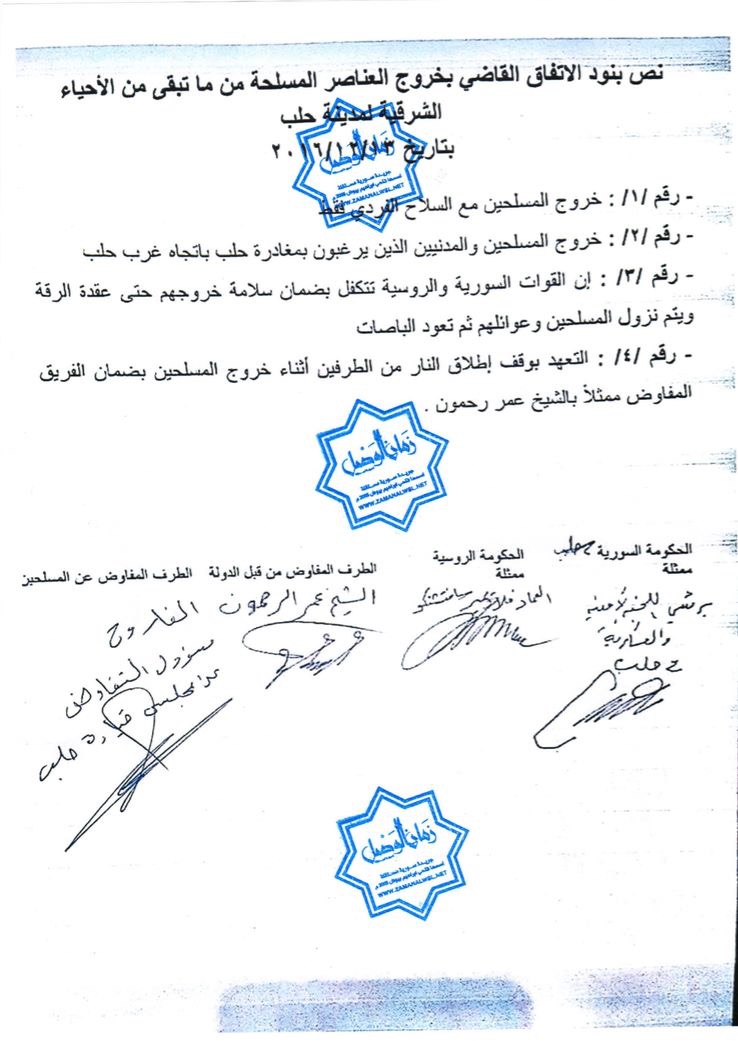 نص بنود الاتفاق القاضي بخروج العناصر المسلحة من ما تبقى من الأحياء
الشرقية لمدينة حلب
بتاريخ ٢٠١٦/١٢/١٣
زمان الوصل
جريدة سورية مستقلة
WWW.ZAMANALWSL.NET
- رقم /١/ : خروج المسلحين مع السلاح الفردي فقط
- رقم /٢/ : خروج المسلحين والمدنيين الذين يرغبون بمغادرة حلب باتجاه غرب حلب
- رقم /٣/ : إن القوات السورية والروسية تتكفل بضمان سلامة خروجهم حتى عقدة الرقة
ويتم نزول المسلحين وعوائلهم ثم تعود الباصات
- رقم /٤/ : التعهد بوقف إطلاق النار من الطرفين أثناء خروج المسلحين بضمان الفريق
المفاوض ممثلاً بالشيخ عمر رحمون .
زمان الوصل
جريدة سورية مستقلة
WWW.ZAMANALWSL.NET
الحكومة السورية ح حلب
ممثلة
اللجنة الأمنية
والعسكرية
ح حلب
الحكومة الروسية
ممثلة
العماد
الطرف المفاوض من قبل الدولة
الشيخ عمر الرحمون
الطرف المفاوض عن المسلحين
الفاروج
مسؤول التفاوض
مجلس قيادة حلب
زمان الوصل
جريدة سورية مستقلة
WWW.ZAMANALWSL.NET